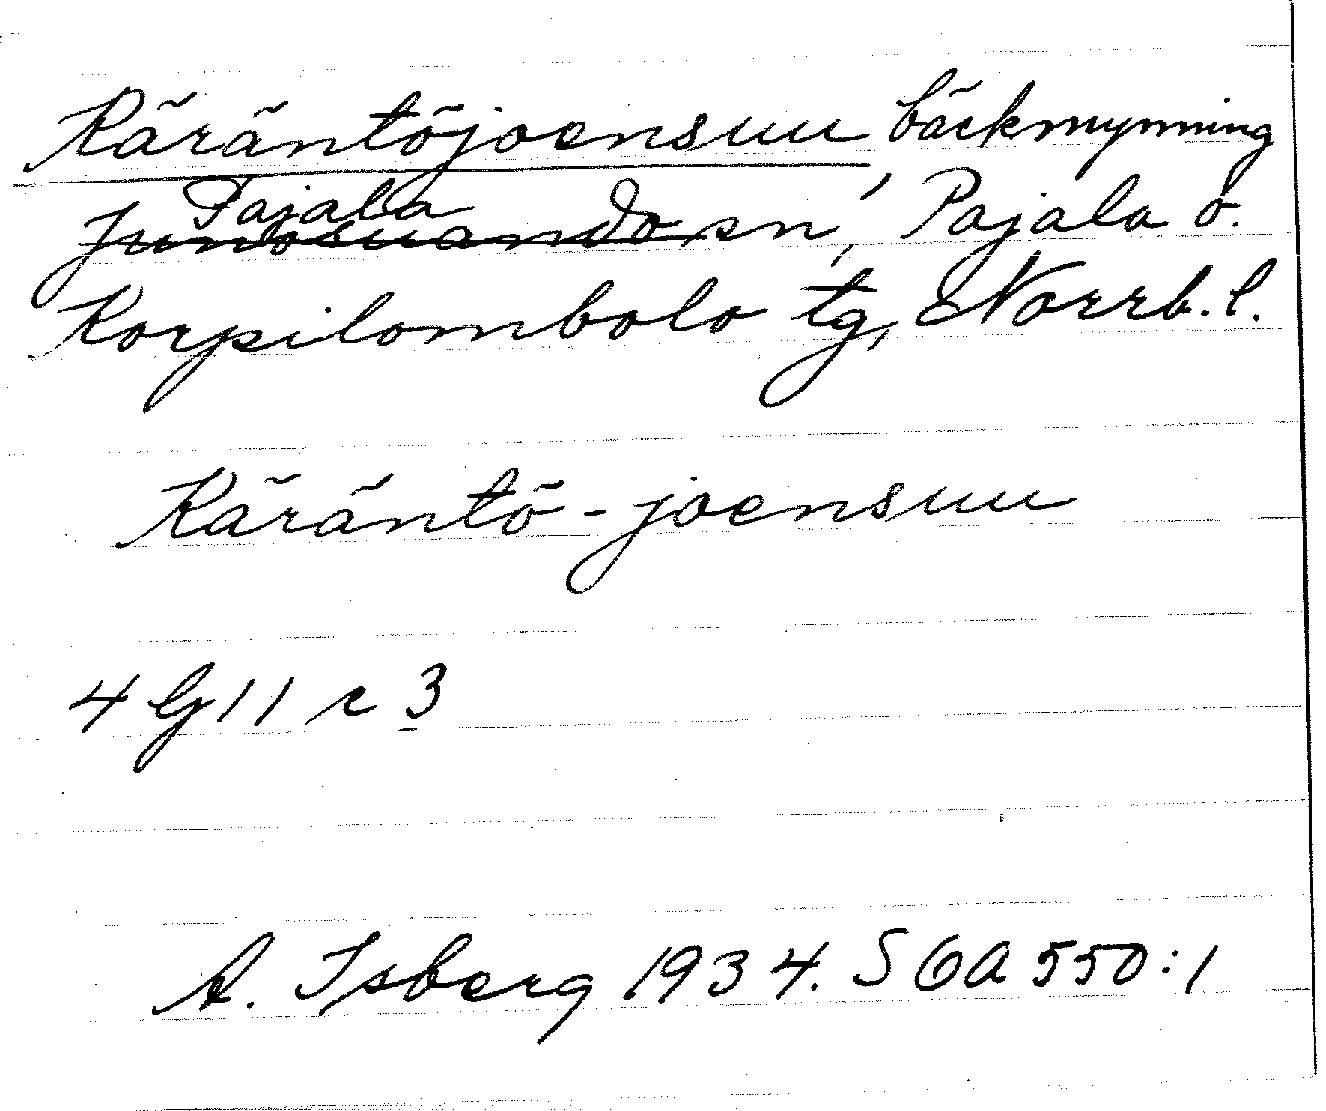 Käräntöjoensuu bäckmynning
Pajala
Junosuando sn, Pajala o.
Korpilombolo tg, Norrb. l.
Käräntö-joensuu
4 G 11 c 3
A. Isberg 1934. SOA 550:1